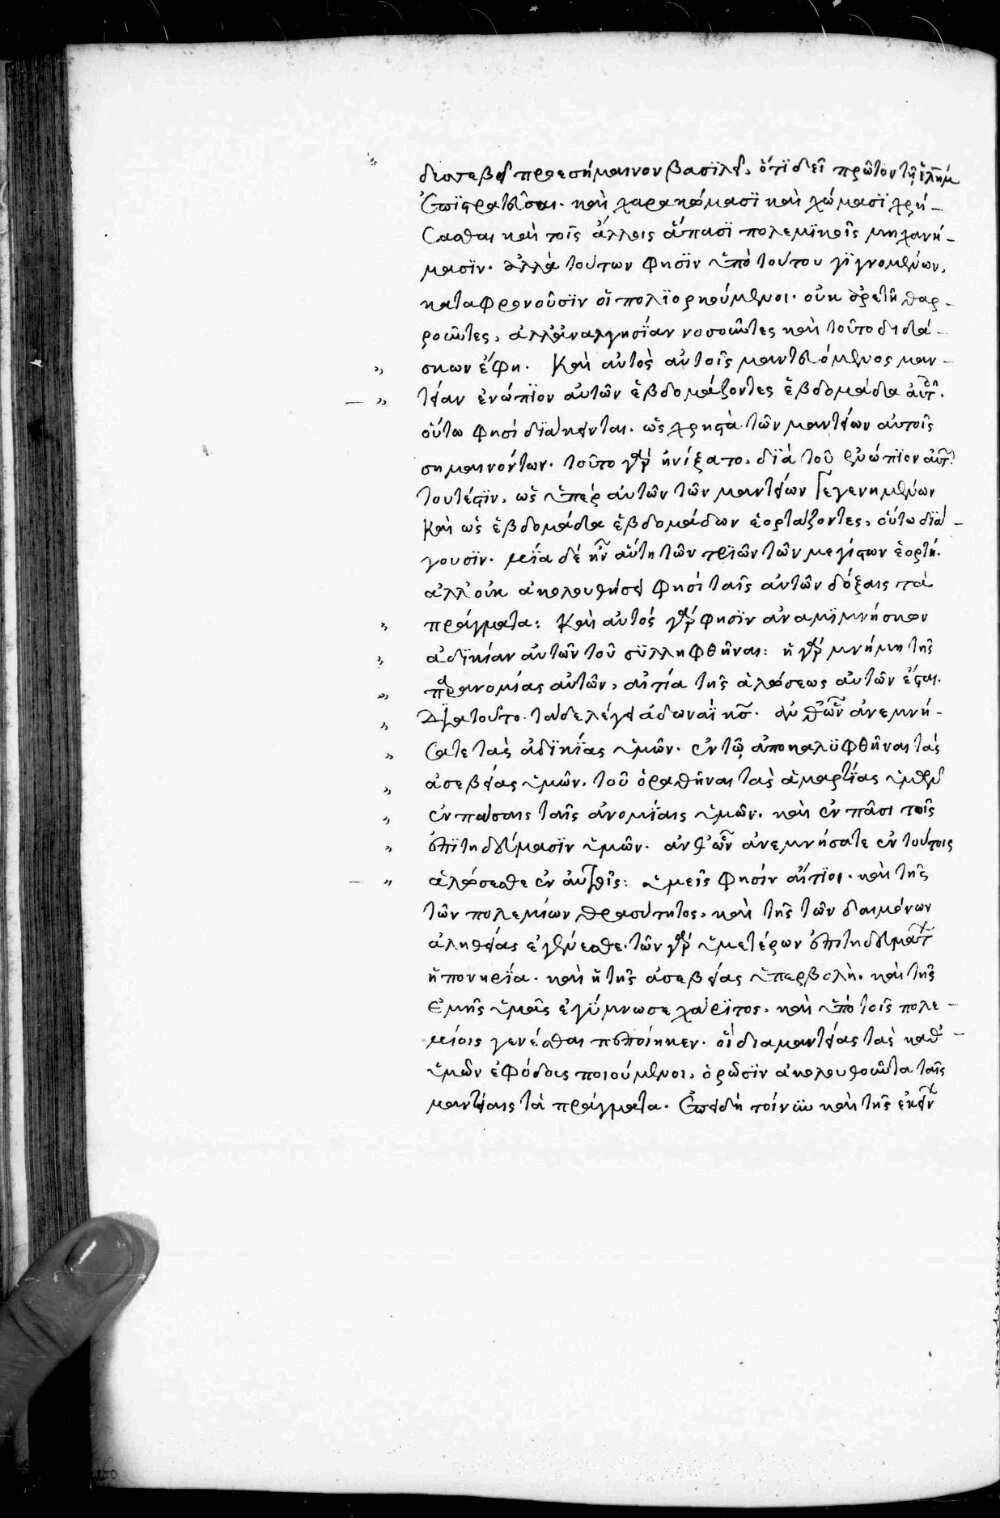 δυσσεβεῖ προεσήμαινον βασιλεῖ, ὅτι δεῖ πρῶτον τῇ ἱλῆμ
ἐπιστρατεῦσαι. καὶ χαρακώμασι καὶ χώμασι χρή-
σασθαι καὶ τοῖς ἄλλοις ἅπασι πολεμικοῖς μηχανή-
μασιν. ἀλλὰ τούτων φησὶν ὑπὸ τούτου γιγνομένων,
καταφρονοῦσιν οἱ πολιορκούμενοι. οὐκ ἀρετῇ θαρ-
ροῦντες, ἀλλ' ἀναλγησίαν νοσοῦντες καὶ τοῦτο διδά-
σκων ἔφη. Καὶ αὐτὸς αὐτοῖς μαντευόμενος μαν-
τείαν ἐνώπιον αὐτῶν ἑβδομάζοντες ἑβδομάδα αὐτοῖς.
οὕτω φησὶ διάκεινται. ὡς χρηστὰ τῶν μαντέων αὐτοῖς
σημαινόντων. τοῦτο γὰρ ἠνίξατο, διὰ τοῦ ἐνώπιον αὐτ
τουτέστιν, ὡς ὑπὲρ αὐτῶν τῶν μαντείων γεγενημένων
καὶ ὡς ἑβδομάδα ἑβδομάδων ἑορτάζοντες, οὕτω διά-
γουσιν. μία δὲ ἦν αὕτη τῶν τριῶν τῶν μεγίστων ἑορτή.
ἀλλ' οὐκ ἀκολουθήσει φησὶ ταῖς αὐτῶν δόξαις τὰ
πράγματα: Καὶ αὐτός γάρ φησιν ἀναμιμνήσκων
ἀδικίαν αὐτῶν τοῦ συλληφθῆναι: ἡ γὰρ μνήμη τῆς
παρανομίας αὐτῶν, αἰτία τῆς ἁλώσεως αὐτῶν ἔσται.
Διατοῦτο τάδε λέγει ἀδωναῒ κς. ἀνθ' ὧν ἀνεμνή-
σατε τὰς ἀδικίας ὑμῶν. ἐν τῷ ἀποκαλυφθῆναι τὰς
ἀσεβείας ὑμῶν. τοῦ ὁραθῆναι τὰς ἁμαρτίας ὑμῶν
ἐν πάσαις ταῖς ἀνομίαις ὑμῶν. καὶ ἐν πᾶσι τοῖς
ἐπιτηδεύμασιν ὑμῶν. ἀνθ' ὧν ἀνεμνήσατε ἐν τούτοις
ἁλώσεσθε ἐν αὐτοῖς: ὑμεῖς φησίν αἴτιοι. καὶ τῆς
τῶν πολεμίων θρασύτητος, καὶ τῆς τῶν δαιμόνων
ἀληθείας ἐγένεσθε. τῶν γὰρ ὑμετέρων ἐπιτηδευμάτ
ἡ πονηρία. καὶ ἡ τῆς ἀσεβείας ὑπερβολὴ. καὶ τῆς
ἐμῆς ὑμᾶς ἐγύμνωσε χάριτος. καὶ ὑπὸ τοῖς πολε-
μίοις γενέσθαι πεποίηκεν. οἱ δια μαντείας τὰς καθ'
ὑμῶν ἐφόδους ποιούμενοι, ὁρῶσιν ἀκολουθοῦντα ταῖς
μαντείαις τὰ πράγματα. Ἐπειδὴ τοίνυν καὶ τῆς ἐκείν